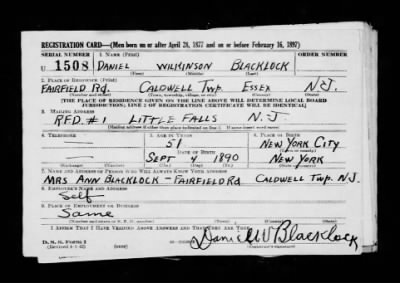 REGISTRATION CARD—(Men born on or after April 28, 1877 and on or before February 16, 1897)
SERIAL NUMBER 1. NAME (Print) ORDER NUMBER
U 1508 DANIEL WILKINSON BLACKLOCK
(First) (Middle) (Last)
2. PLACE OF RESIDENCE (Print)
FAIRFIELD Rd. CALDWELL Twp. ESSEX N.J.
(Number and street) (Town, township, village, or city) (County) (State)
[THE PLACE OF RESIDENCE GIVEN ON THE LINE ABOVE WILL DETERMINE LOCAL BOARD
JURISDICTION; LINE 2 OF REGISTRATION CERTIFICATE WILL BE IDENTICAL]
3. MAILING ADDRESS
RFD. #1 LITTLE FALLS N.J
4. TELEPHONE 5. AGE IN YEARS 6. PLACE OF BIRTH
— 51 NEW YORK CITY
DATE OF BIRTH
— SEPT 4 1890 NEW YORK
7. NAME AND ADDRESS OF PERSON WHO WILL ALWAYS KNOW YOUR ADDRESS
MRS ANN BLACKLOCK - FAIRFIELD Rd CALDWELL Twp. N.J.
8. EMPLOYER'S NAME AND ADDRESS
Self
9. PLACE OF EMPLOYMENT OR BUSINESS
Same
I AFFIRM THAT I HAVE VERIFIED ABOVE ANSWERS AND THAT THEY ARE TRUE.
D. S. S. Form 1
(Revised 4-1-42) (over)
Daniel W Blacklock